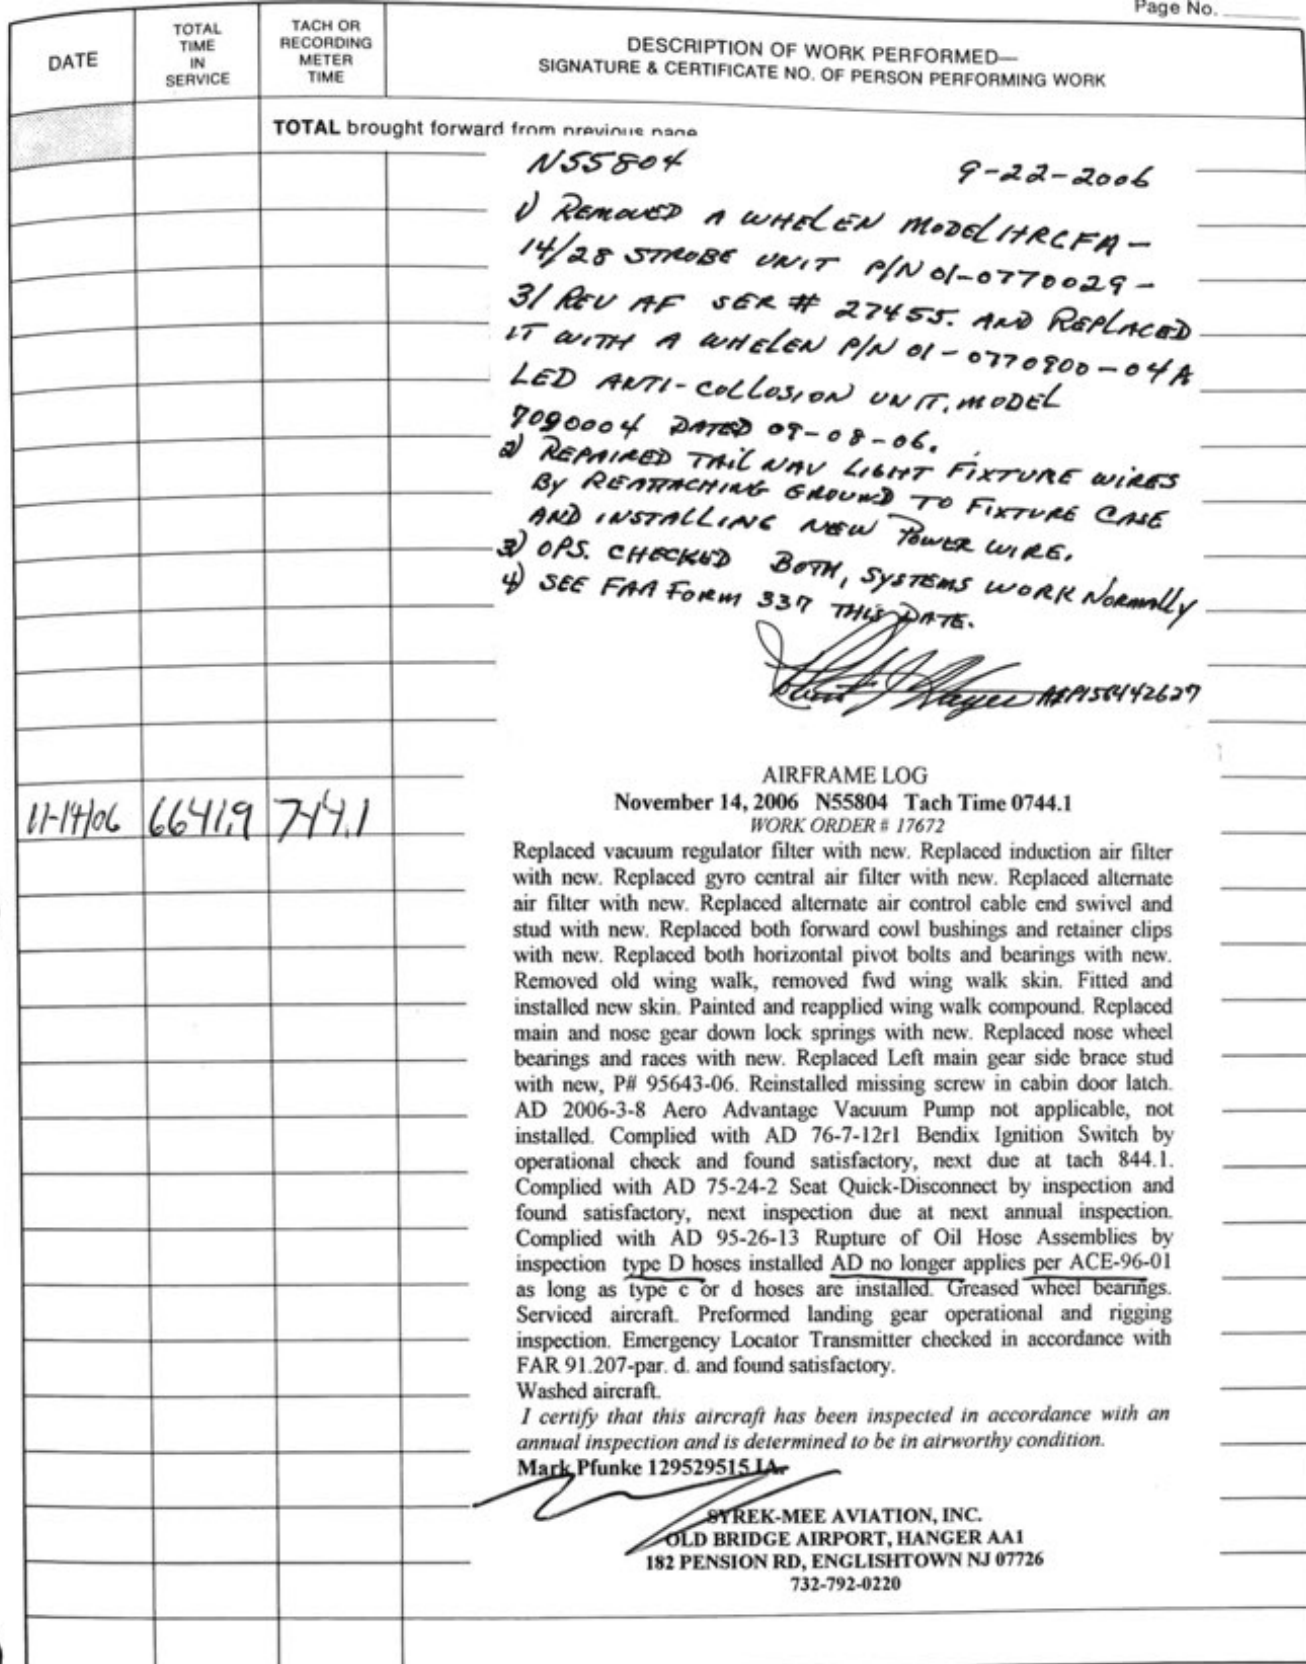 Page No.
DATE
TOTAL TIME IN SERVICE
TACH OR RECORDING METER TIME
DESCRIPTION OF WORK PERFORMED—
SIGNATURE & CERTIFICATE NO. OF PERSON PERFORMING WORK
TOTAL brought forward from previous page
N55804 9-22-2006
1) REMOVED A WHELEN MODEL HRCFA-
14/28 STROBE UNIT P/N 01-0770029-
31 REV AF SER # 27455. AND REPLACED
IT WITH A WHELEN P/N 01-0770900-04A
LED ANTI-COLLOSION UNIT, MODEL
7090004 DATED 09-08-06.
2) REPAIRED TAIL NAV LIGHT FIXTURE WIRES
BY REATTACHING GROUND TO FIXTURE CASE
AND INSTALLING NEW POWER WIRE.
3) OPS. CHECKED BOTH, SYSTEMS WORK NORMALLY
4) SEE FAA FORM 337 THIS DATE.
AIRFRAME LOG
November 14, 2006 N55804 Tach Time 0744.1
WORK ORDER # 17672
11-14/06 6641.9 744.1
Replaced vacuum regulator filter with new. Replaced induction air filter
with new. Replaced gyro central air filter with new. Replaced alternate
air filter with new. Replaced alternate air control cable end swivel and
stud with new. Replaced both forward cowl bushings and retainer clips
with new. Replaced both horizontal pivot bolts and bearings with new.
Removed old wing walk, removed fwd wing walk skin. Fitted and
installed new skin. Painted and reapplied wing walk compound. Replaced
main and nose gear down lock springs with new. Replaced nose wheel
bearings and races with new. Replaced Left main gear side brace stud
with new, P# 95643-06. Reinstalled missing screw in cabin door latch.
AD 2006-3-8 Aero Advantage Vacuum Pump not applicable, not
installed. Complied with AD 76-7-12r1 Bendix Ignition Switch by
operational check and found satisfactory, next due at tach 844.1.
Complied with AD 75-24-2 Seat Quick-Disconnect by inspection and
found satisfactory, next inspection due at next annual inspection.
Complied with AD 95-26-13 Rupture of Oil Hose Assemblies by
inspection type D hoses installed AD no longer applies per ACE-96-01
as long as type c or d hoses are installed. Greased wheel bearings.
Serviced aircraft. Preformed landing gear operational and rigging
inspection. Emergency Locator Transmitter checked in accordance with
FAR 91.207-par. d. and found satisfactory.
Washed aircraft.
I certify that this aircraft has been inspected in accordance with an
annual inspection and is determined to be in airworthy condition.
Mark Pfunke 129529515 IA.
SYREK-MEE AVIATION, INC.
OLD BRIDGE AIRPORT, HANGER AA1
182 PENSION RD, ENGLISHTOWN NJ 07726
732-792-0220